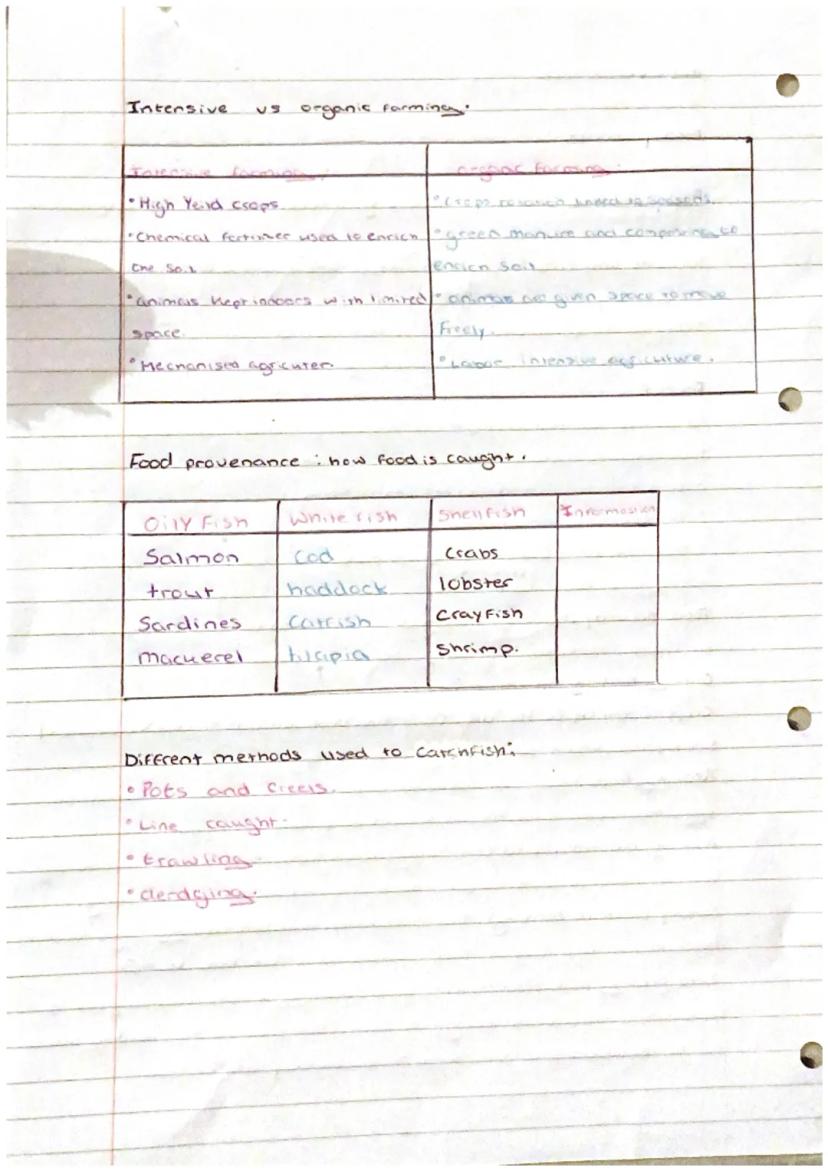 Intensive vs organic farming.
Intensive farming. organic farming.
• High Yeild crops • Crops
• Chemical fertiliser used to enrich • green manure and composting to
the soil enrich soil
• animals kept indoors with limited • animals are given space to move
space. freely.
• Mechanised agricuter. • Labour intensive agriculture.
Food provenance : how food is caught.
Oily Fish White fish Shellfish Information
Salmon cod crabs
trout haddock lobster
Sardines Catfish Crayfish
mackerel tilapia Shrimp.
Different methods used to catch fish:
• Pots and creels.
• Line caught.
• trawling
• derdging.